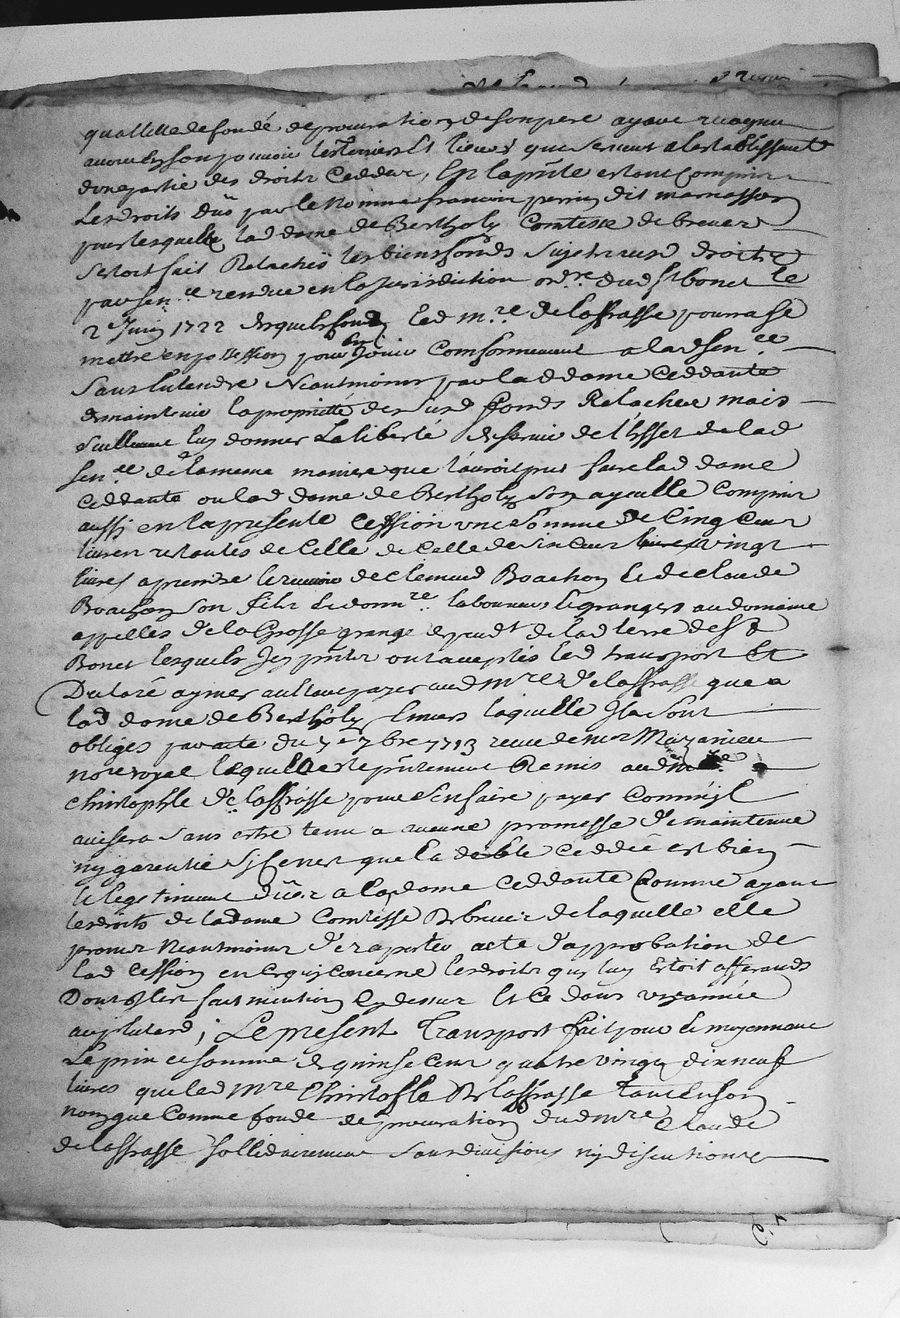 quallitte de fondé de procuration de son pere ayant recognu
avoir en son pouvoir les terriers Et lieues qui servent a lestablissemt
dune partie des droits ceddes, En la pnte estant compris
Les droits dus par le nomme francois perrin dit marnasson
pour lesquelles lad dame de Bertholy Comtesse de brever
sestoit fait Relacher les biens fonds sujets aux d droits
par sen.ce rendue en la jurisdiction ord.re dud st bonet le
2e Juin 1722 desquels fonds led m.re de lassrasse pourra se
mettre en possession pour En jouir Conformement a lad sen.ce
sans entendre Neantmoins par lad dame ceddante
de maintenir la proprietté des susd fonds Relaches mais
seullement luy donner La liberté de servir de l'effet de lad
sen.ce de la meme maniere que l'auroit pu faire lad dame
ceddante ou lad dame de Bertholy son ayeulle Compris
aussy en la presente cession une somme de Cinq cent
livres restantes de celle de celle de six cent livres vingt
livres a prendre de clemend Boachon de de claude
Boachon son fils de dom.re laboureurs & grangers au domaine
appellés de la Grosse grange dependt de lad terre de st
Bonet lesquels Icy pnts ont acceptés led transport Et
Declaré aymer autant payer aud m.re de lassrasse que a
lad dame de Bertholy Envers laquelle Ils sont
obliges par acte du 7e 7bre 1713 receu de me Mazanieu
no.re royal lequelle este pntement Remis aud
christophle de lassrasse pour s'En faire payer Comm'il
avisera sans estre tenu a aucune promesse de maintenue
ny garentie sy ce nest que la debte ceddée est bien
& legitimement düe a lad dame ceddante Comme ayant
les droits de la dame Comtesse de brever de laquelle elle
promet Neantmoins de raporter acte d'approbation de
lad cession en ce quy concerne les droits quy luy Estoit afferands
Dont Est fait mention cy dessus Et ce dans une année
au plutard; Le present Transport fait pour & moyennant
Le prix et somme de quinse cent quatre vingt dix neuf
livres que led m.re Christofle De lassrasse tant En son
nom que comme fondé de procuration dud m.re Claude
de lassrasse sollidairement sans divisions ny discutions